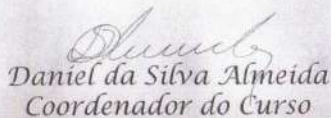 Daniel da Silva Almeida
Coordenador do Curso